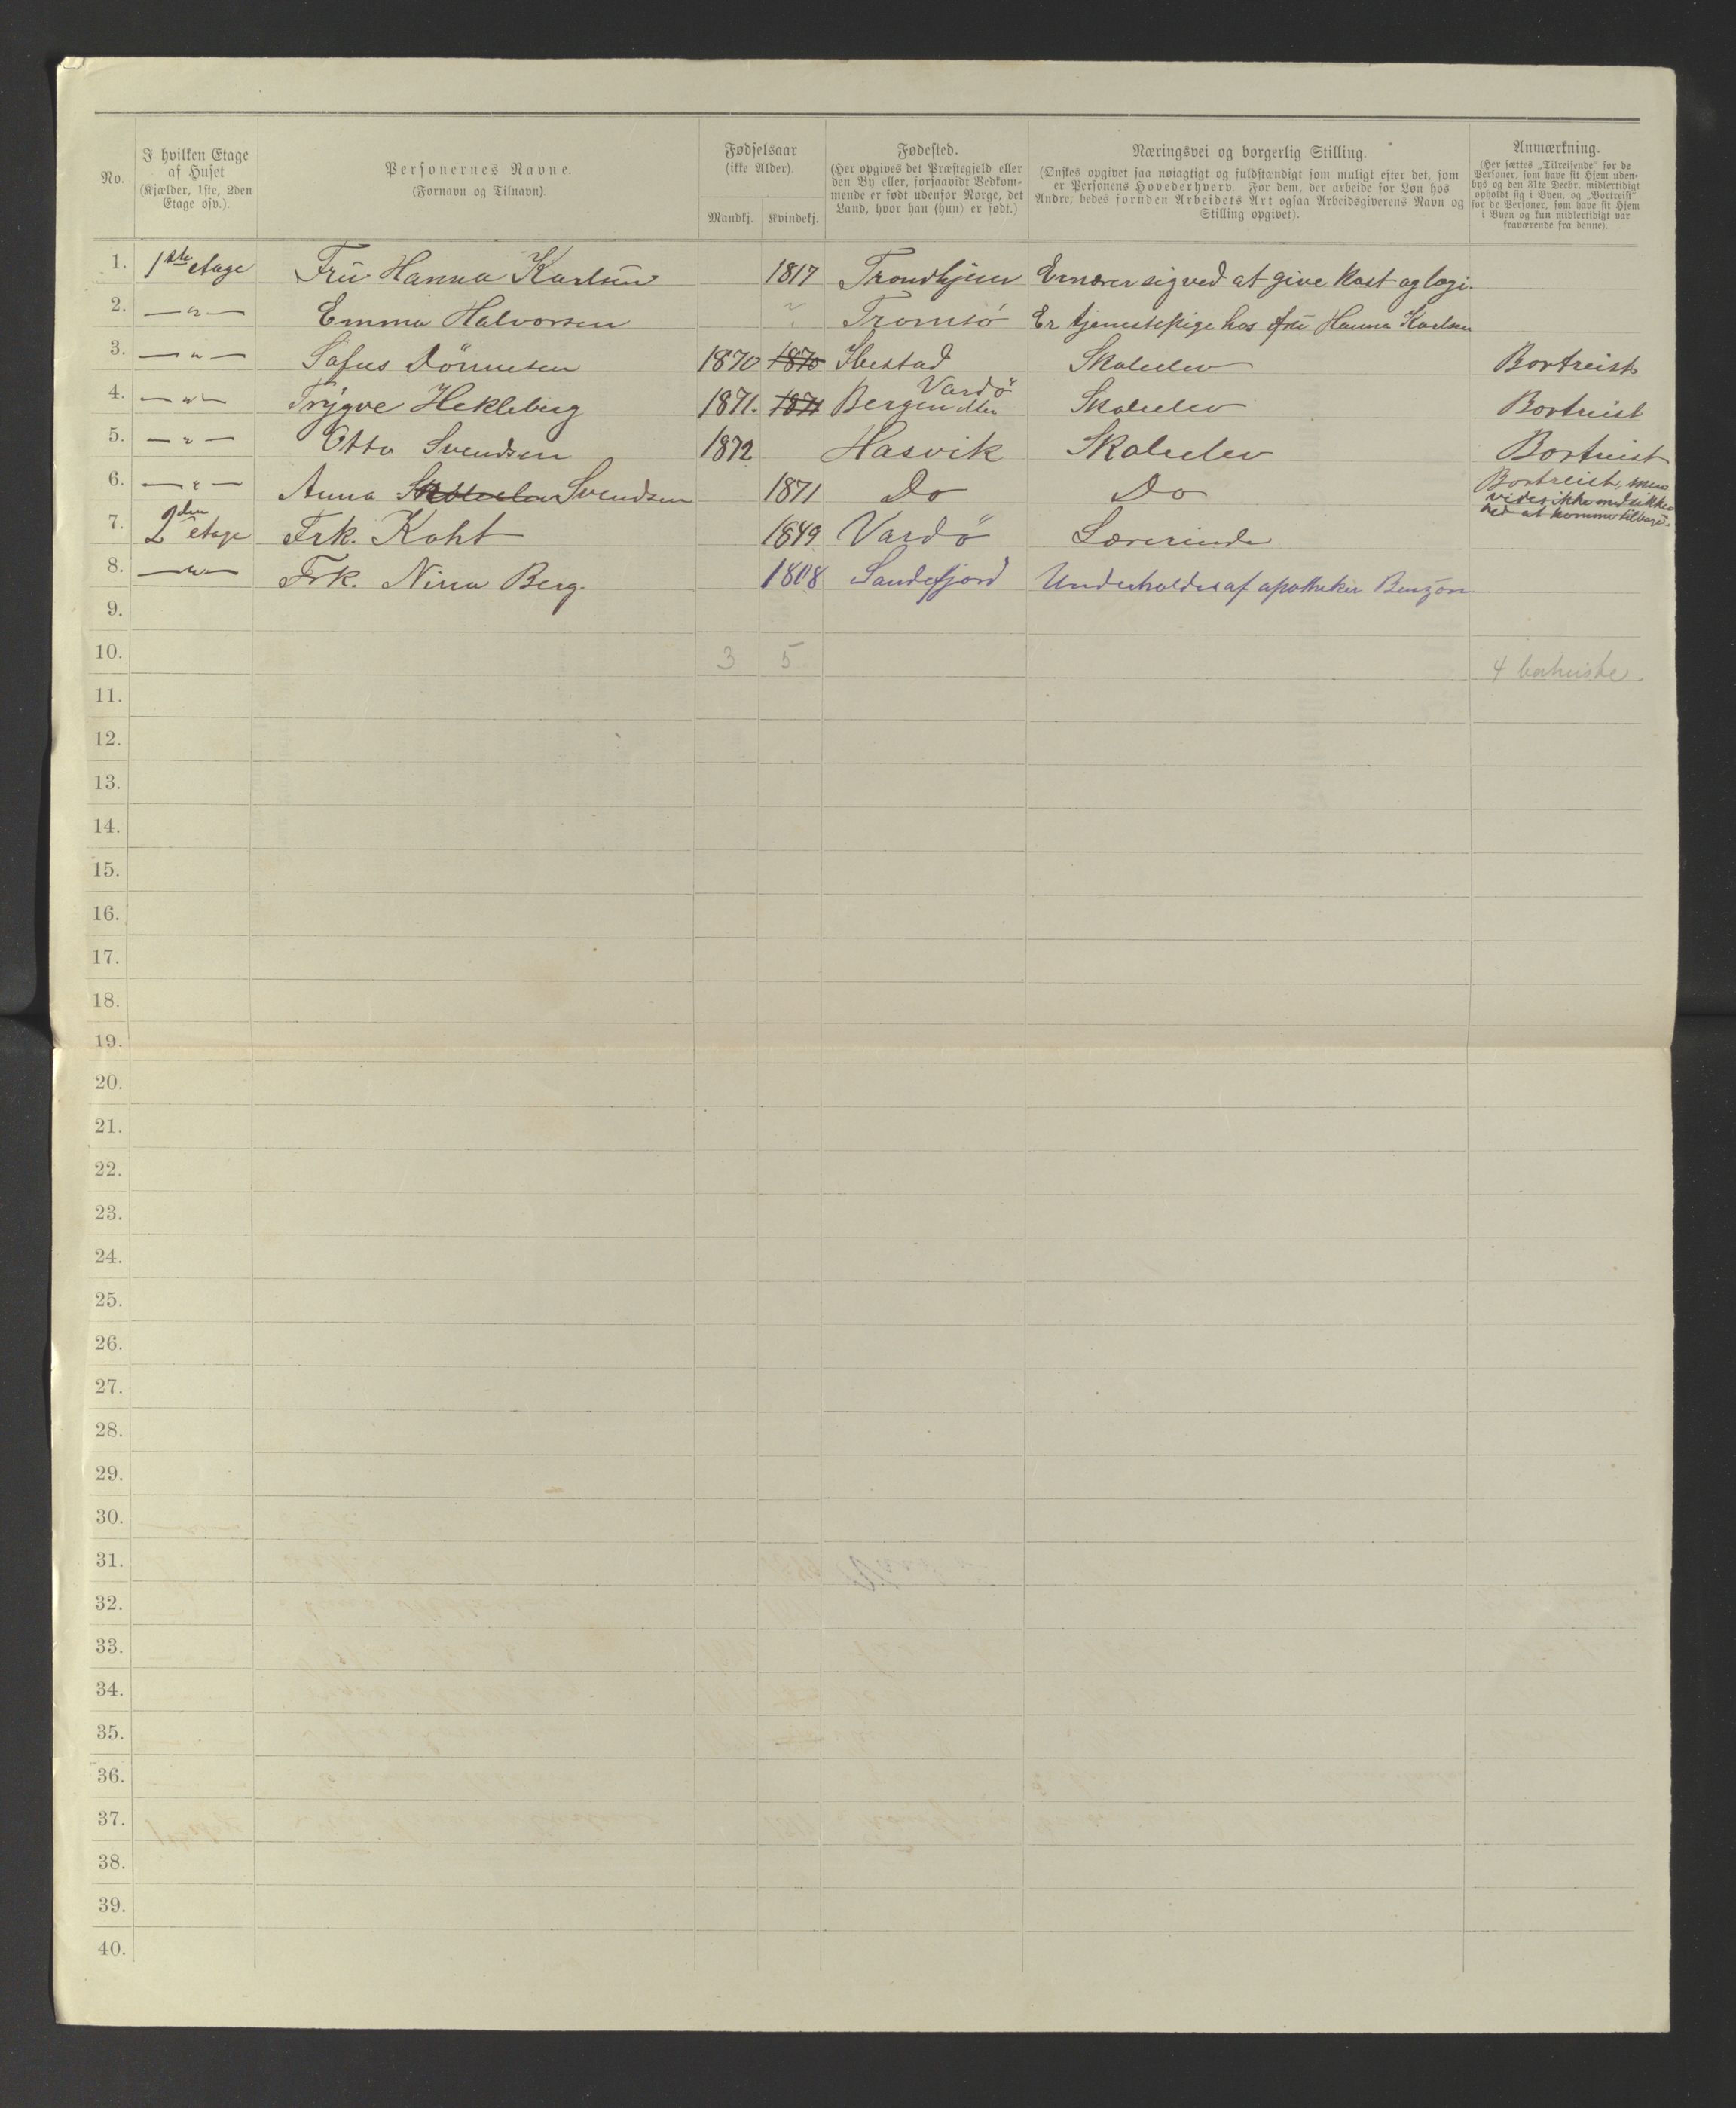 No.
I hvilken Etage
af Huset
(Kjælder, 1ste, 2den
Etage osv.).
Personernes Navne.
(Fornavn og Tilnavn).
Fødselsaar
(ikke Alder).
Mandkj. Kvindekj.
Fødested.
(Her opgives det Præstegjeld eller
den By eller, forsaavidt Vedkom-
mende er født udenfor Norge, det
Land, hvor han (hun) er født.)
Næringsvei og borgerlig Stilling.
(Ønskes opgivet saa nøiagtigt og fuldstændigt som muligt efter det, som
er Personens Hovederhverv. For dem, der arbeide for Løn hos
Andre, bedes foruden Arbeidets Art ogsaa Arbeidsgiverens Navn og
Stilling opgivet).
Anmærkning.
(Her sættes „Tilreisende" for de
Personer, som have sit Hjem uden-
bys og den 31te Decbr. midlertidigt
opholdt sig i Byen, og „Bortreist"
for de Personer, som have sit Hjem
i Byen og kun midlertidigt var
fraværende fra denne).
1. 1ste etage Fru Hanna Karlsen 1817 Trondhjem Ernærer sig ved at give kost og logi.
2. — " — Emma Halvorsen ? Tromsö Er tjenestepige hos fru Hanna Karlsen
3. — " — Sofus Dönnesen 1870 1870 Ibestad Skoleelev Bortreist
4. — " — Trygve Hekleberg 1871. 1871 Bergen eller Vardö Skoleelev Bortreist
5. — " — Otto Svendsen 1872 Hasvik Skoleelev Bortreist
6. — " — Anna Skoleelev Svendsen 1871 Do Do Bortreist, men
vides ikke med sikker
hed at komme tilbage.
7. 2den etage Frk. Koht 1849 Vardö Lærerinde
8. — " — Frk. Nina Berg. 1808 Sandefjord Underholdes af apotheker Benzon
9.
10. 3 5 4 bortreiste.
11.
12.
13.
14.
15.
16.
17.
18.
19.
20.
21.
22.
23.
24.
25.
26.
27.
28.
29.
30.
31.
32.
33.
34.
35.
36.
37.
38.
39.
40.